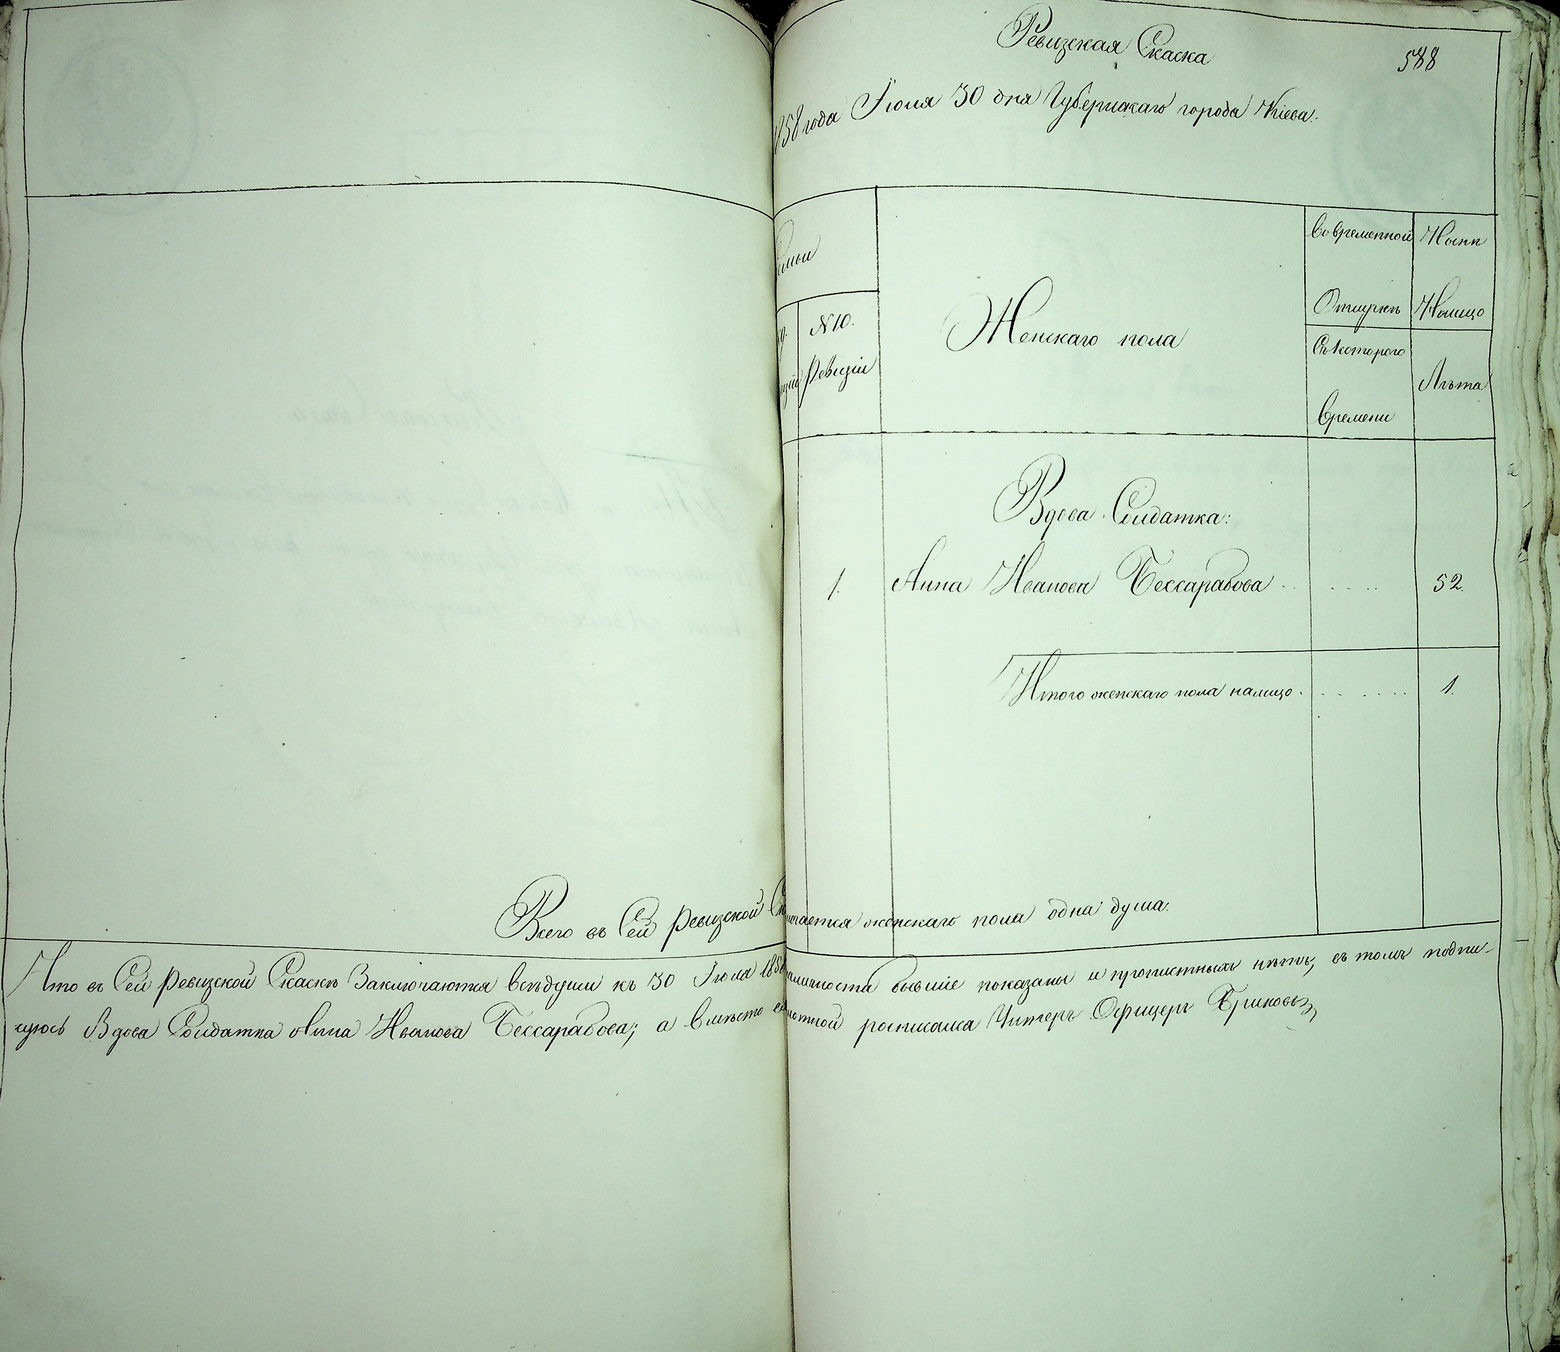 Ревизская Скаска
588
1858 года Іюля 30 дня Губернскаго города Кіева.
№ 10. Ревизіи
Женскаго пола
Во временной Отлучкѣ
Съ котораго Времени
Ноль Налицо
Лѣта
Вдова Солдатка:
1. Анна Иванова Бессарабова . . . . . . 52.
Итого женскаго пола налицо . . . . . . . 1.
Всего въ Сей ревизской женскаго пола одна душа.
Что въ Сей ревизской Скаскѣ Заключаются всѣ души къ 30 Іюля 1858 бывшіе показаны и прописныхъ нѣтъ, въ томъ подпи-
суюсь Вдова Солдатка Анна Иванова Бессарабова; а вмѣсто росписался Унтеръ Офицеръ Бриковъ